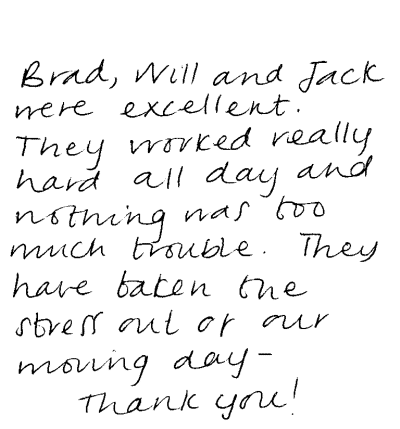 Brad, Will and Jack
were excellent.
They worked really
hard all day and
nothing was too
much trouble. They
have taken the
stress out of our
moving day -
Thank you!